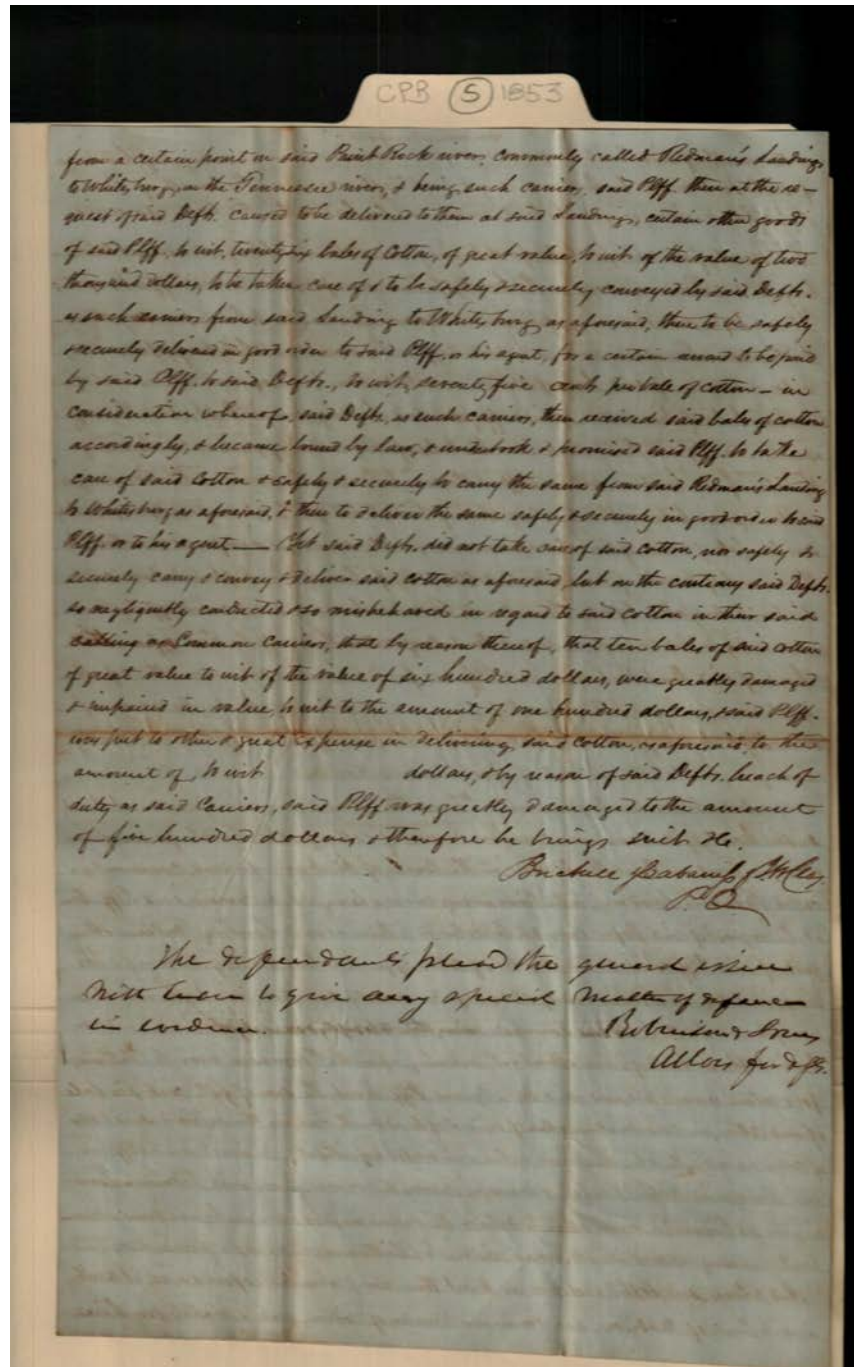 CPB (S) 1853
from a certain point on said Paint Rock river, commonly called Redman's Landing,
to Whitesburg, on the Tennessee river, & being such carriers, said Plff. then at the re-
quest of said Defts. caused to be delivered to them at said Landing, certain other goods
of said Plff. to wit, twenty six bales of Cotton, of great value, to wit of the value of two
thousand dollars, to be taken care of & to be safely & securely conveyed by said Defts.
as such carriers from said Landing to Whitesburg as aforesaid, there to be safely
& securely delivered in good order to said Plff. or his agent, for a certain reward to be paid
by said Plff. to said Defts., to wit, seventy five cents per bale of cotton - in
consideration whereof, said Defts, as such carriers, then received said bales of cotton
accordingly, & became bound by law, & undertook & promised said Plff. to take
care of said Cotton & safely & securely to carry the same from said Redman's Landing
to Whitesburg as aforesaid, & there to deliver the same safely & securely in good order to said
Plff. or to his agent — Yet said Defts. did not take care of said cotton, nor safely &
securely carry & convey & deliver said cotton as aforesaid, but on the contrary said Defts.
so negligently conducted & so misbehaved in regard to said cotton in their said
calling as Common Carriers, that by reason thereof, that ten bales of said cotton
of great value to wit of the value of six hundred dollars, were greatly damaged
& impaired in value, to wit to the amount of one hundred dollars, & said Plff.
was put to other & great expense in delivering said cotton, as aforesaid, to the
amount of, to wit dollars, & by reason of said Defts. breach of
duty as said Carriers, said Plff was greatly damaged to the amount
of five hundred dollars & therefore he brings suit &c.
Brickell & Cabaniss
P.Q
The defendants plead the general issue
with leave to give any special matter of defence
in evidence.
Robinson & Jones
Attors for dfts.